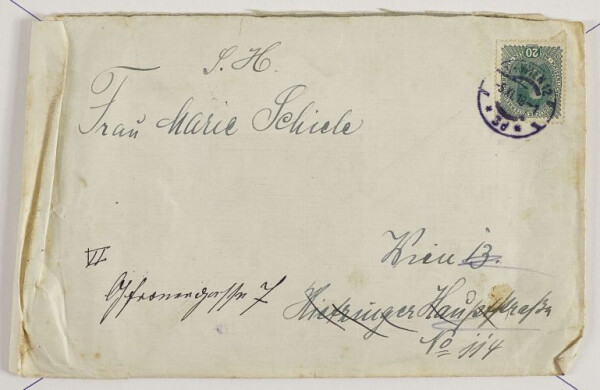 20
WIEN 12
S. H.
Frau Marie Schiele
Wien 13.
VI
Gfrornergasse 7
Hietzinger Hauptstraße
No 114